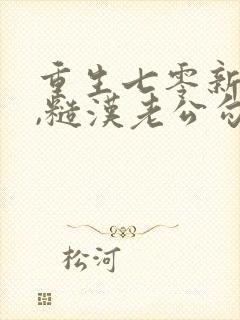 重生七零新
,糙汉老公勾
松河